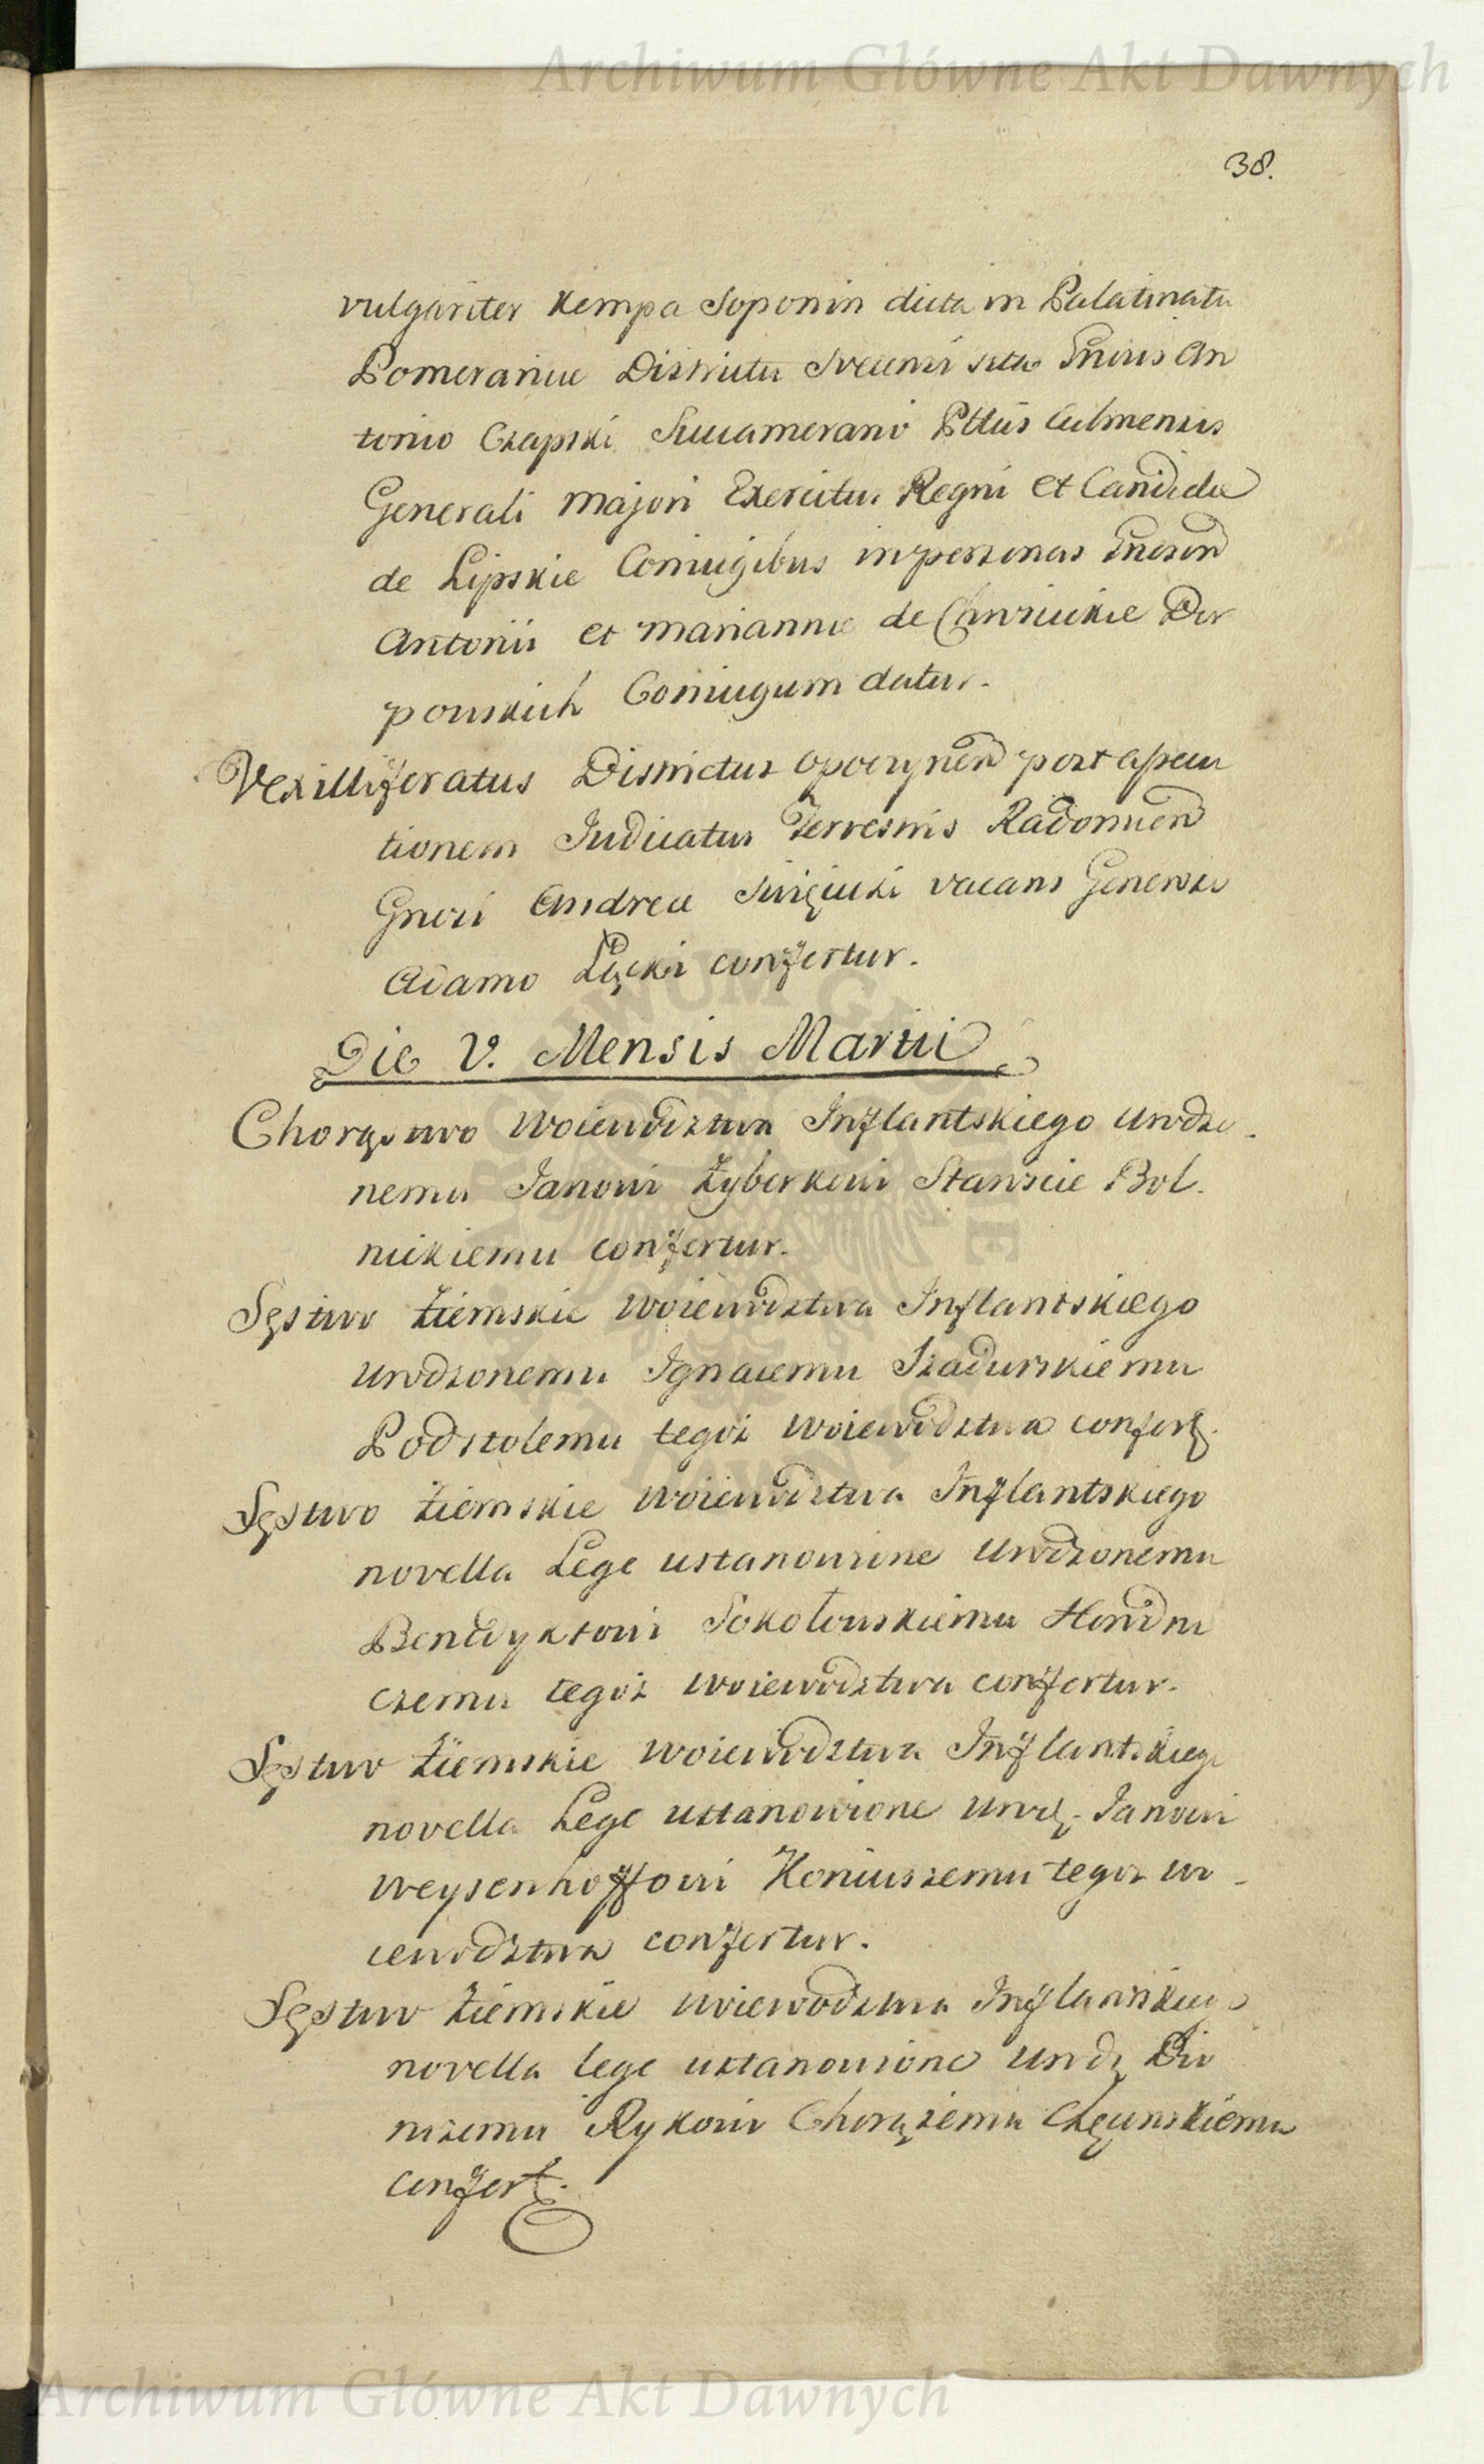 Archiwum Główne Akt Dawnych
38.
vulgariter Kempa Soponin dicta in Palatinatu
Pomeraniae Districtu Svecensi sita Gnosis An
tonio Czapski Succamerario Pttūs Culmensis
Generali Majori Exercitus Regni et Candida
de Lipskie Coniugibus in personas Gnosorū
Antonii et Mariannae de
Coniugum datur.
Vexilliferatus Districtus Opocznen post assecu
tionem Judicatus Terrestris Radomien
Gnosi Andrea vacans Generoso
Adamo Łęcki confertur.
Die V. Mensis Martii
Chorąstwo Woiewodztwa Inflantskiego Urodzo-
nemu Janowi Zyberkowi Staroście Bol.
nickiemu confertur.
Sęstwo Ziemskie Woiewodztwa Inflantskiego
Urodzonemu Ignacemu Szadurskiemu
Podstolemu tegoż Woiewodztwa confert.
Sęstwo Ziemskie Woiewodztwa Inflantskiego
novella Lege ustanowione Urodzonemu
Benedyktowi Sokołowskiemu Horodni
czemu tegoż Woiewodztwa confertur.
Sęstwo Ziemskie Woiewodztwa Inflantskiego
novella Lege ustanowione Urodz. Janowi
Weysenhoffowi Koniuszemu tegoż Wo-
iewodztwa confertur.
Sęstwo Ziemskie Woiewodztwa Inflantskiego
novella lege ustanowione Urodz Dio
nizemu Rykowi Chorążemu Chęcinskiemu
confert.
Archiwum Główne Akt Dawnych